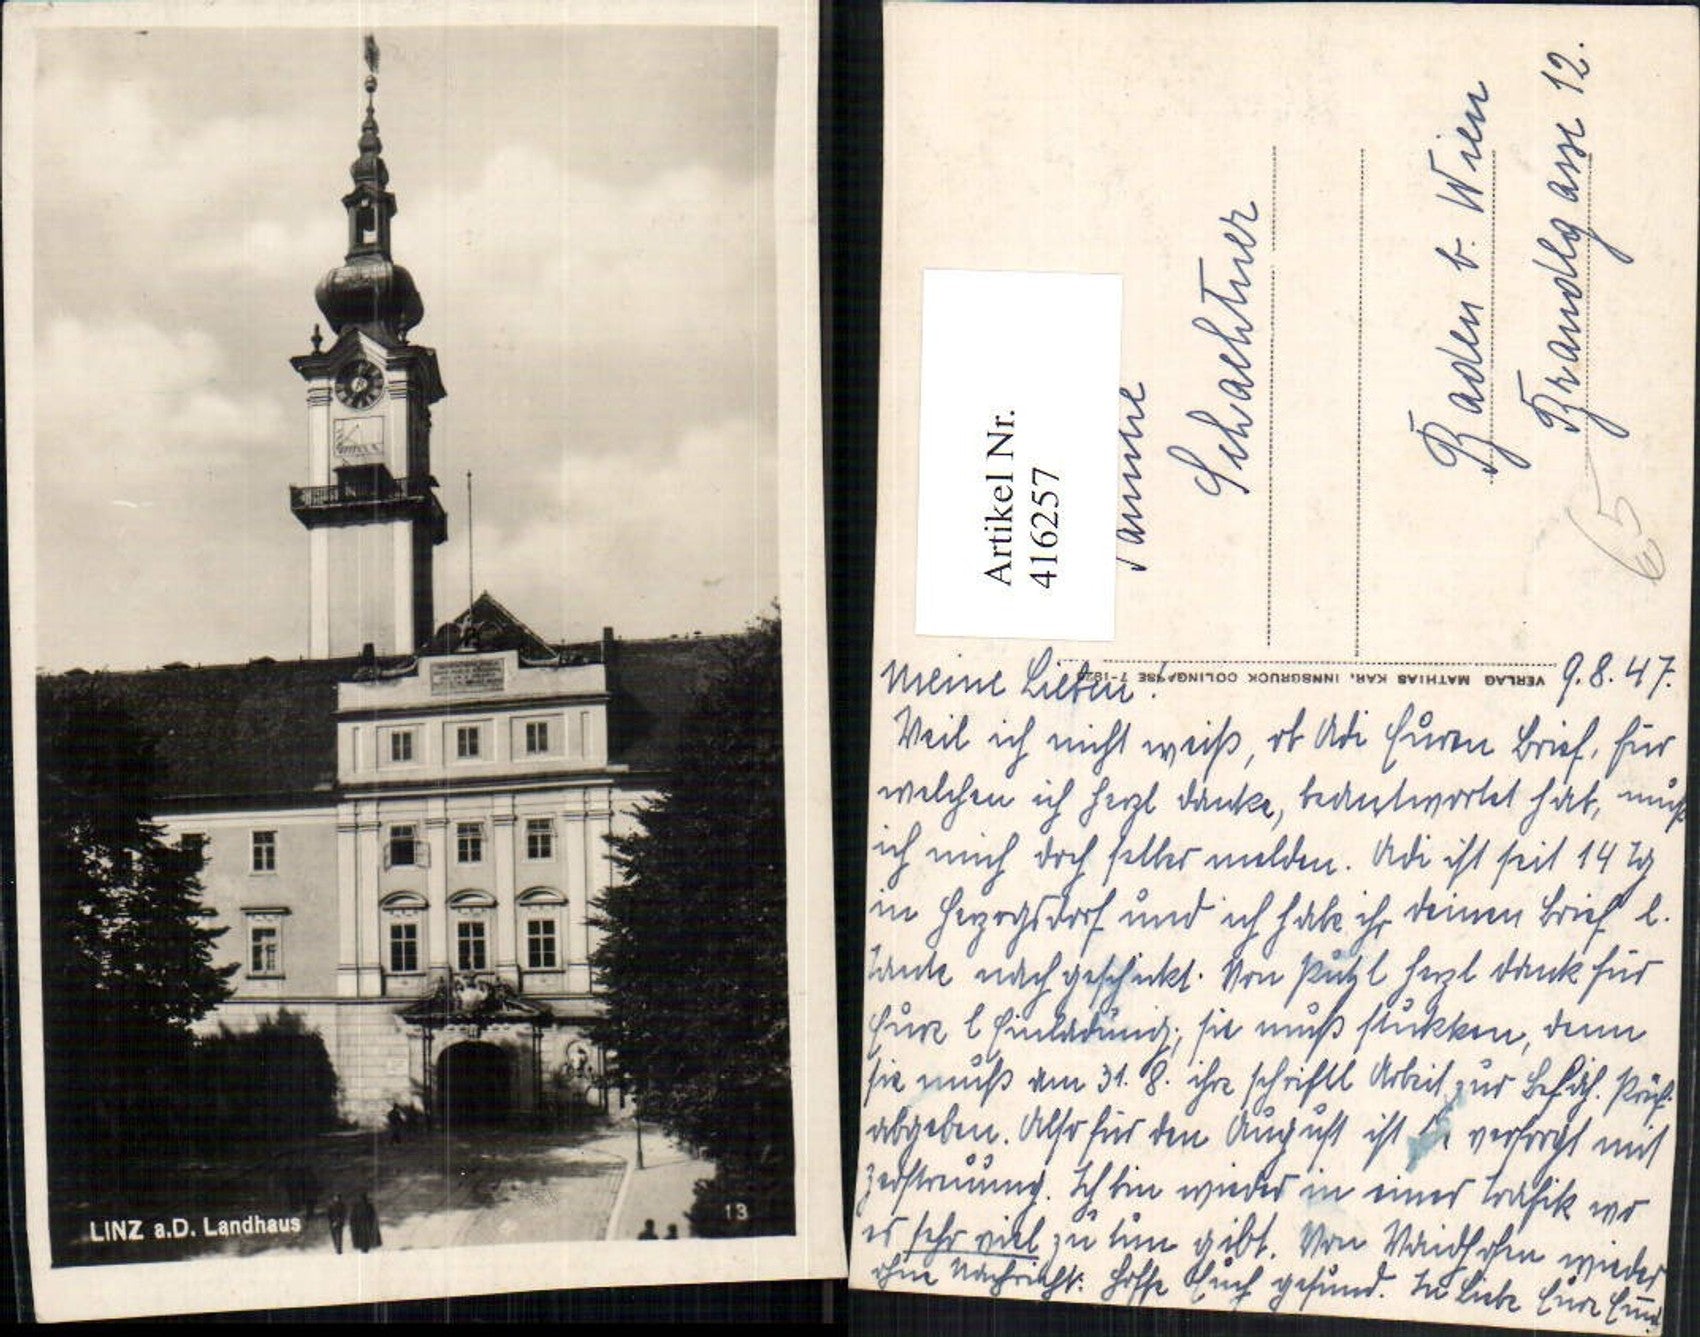 LINZ a.D. Landhaus
13
Artikel Nr.
416257
Schachtner
Baden b. Wien
Brandlgasse 12.
65
VERLAG MATHIAS KAR, INNSBRUCK COLINGASSE 7-
9.8.47.
Meine Lieben!
Weil ich nicht weiß, ob Adi Euren Brief, für
welchen ich herzl danke, beantwortet hat, muß
ich mich doch selber melden. Adi ist seit 14 Tg
in Herzogsdorf und ich habe ihr deinen Brief l.
Tante nachgeschickt. Von Putzl herzl Dank für
Eure l Einladung, sie muß stukken, denn
sie muß am 31. 8. ihre schriftl Arbeit zur Befäh. Prüf.
abgeben. Also für den August ist sie versorgt mit
Zerstreuung. Ich bin wieder in einer Trafik wo
es sehr viel zu tun gibt. Von Waidhofen wieder
ohne Nachricht. Hoffe Euch gesund. In Liebe Eure